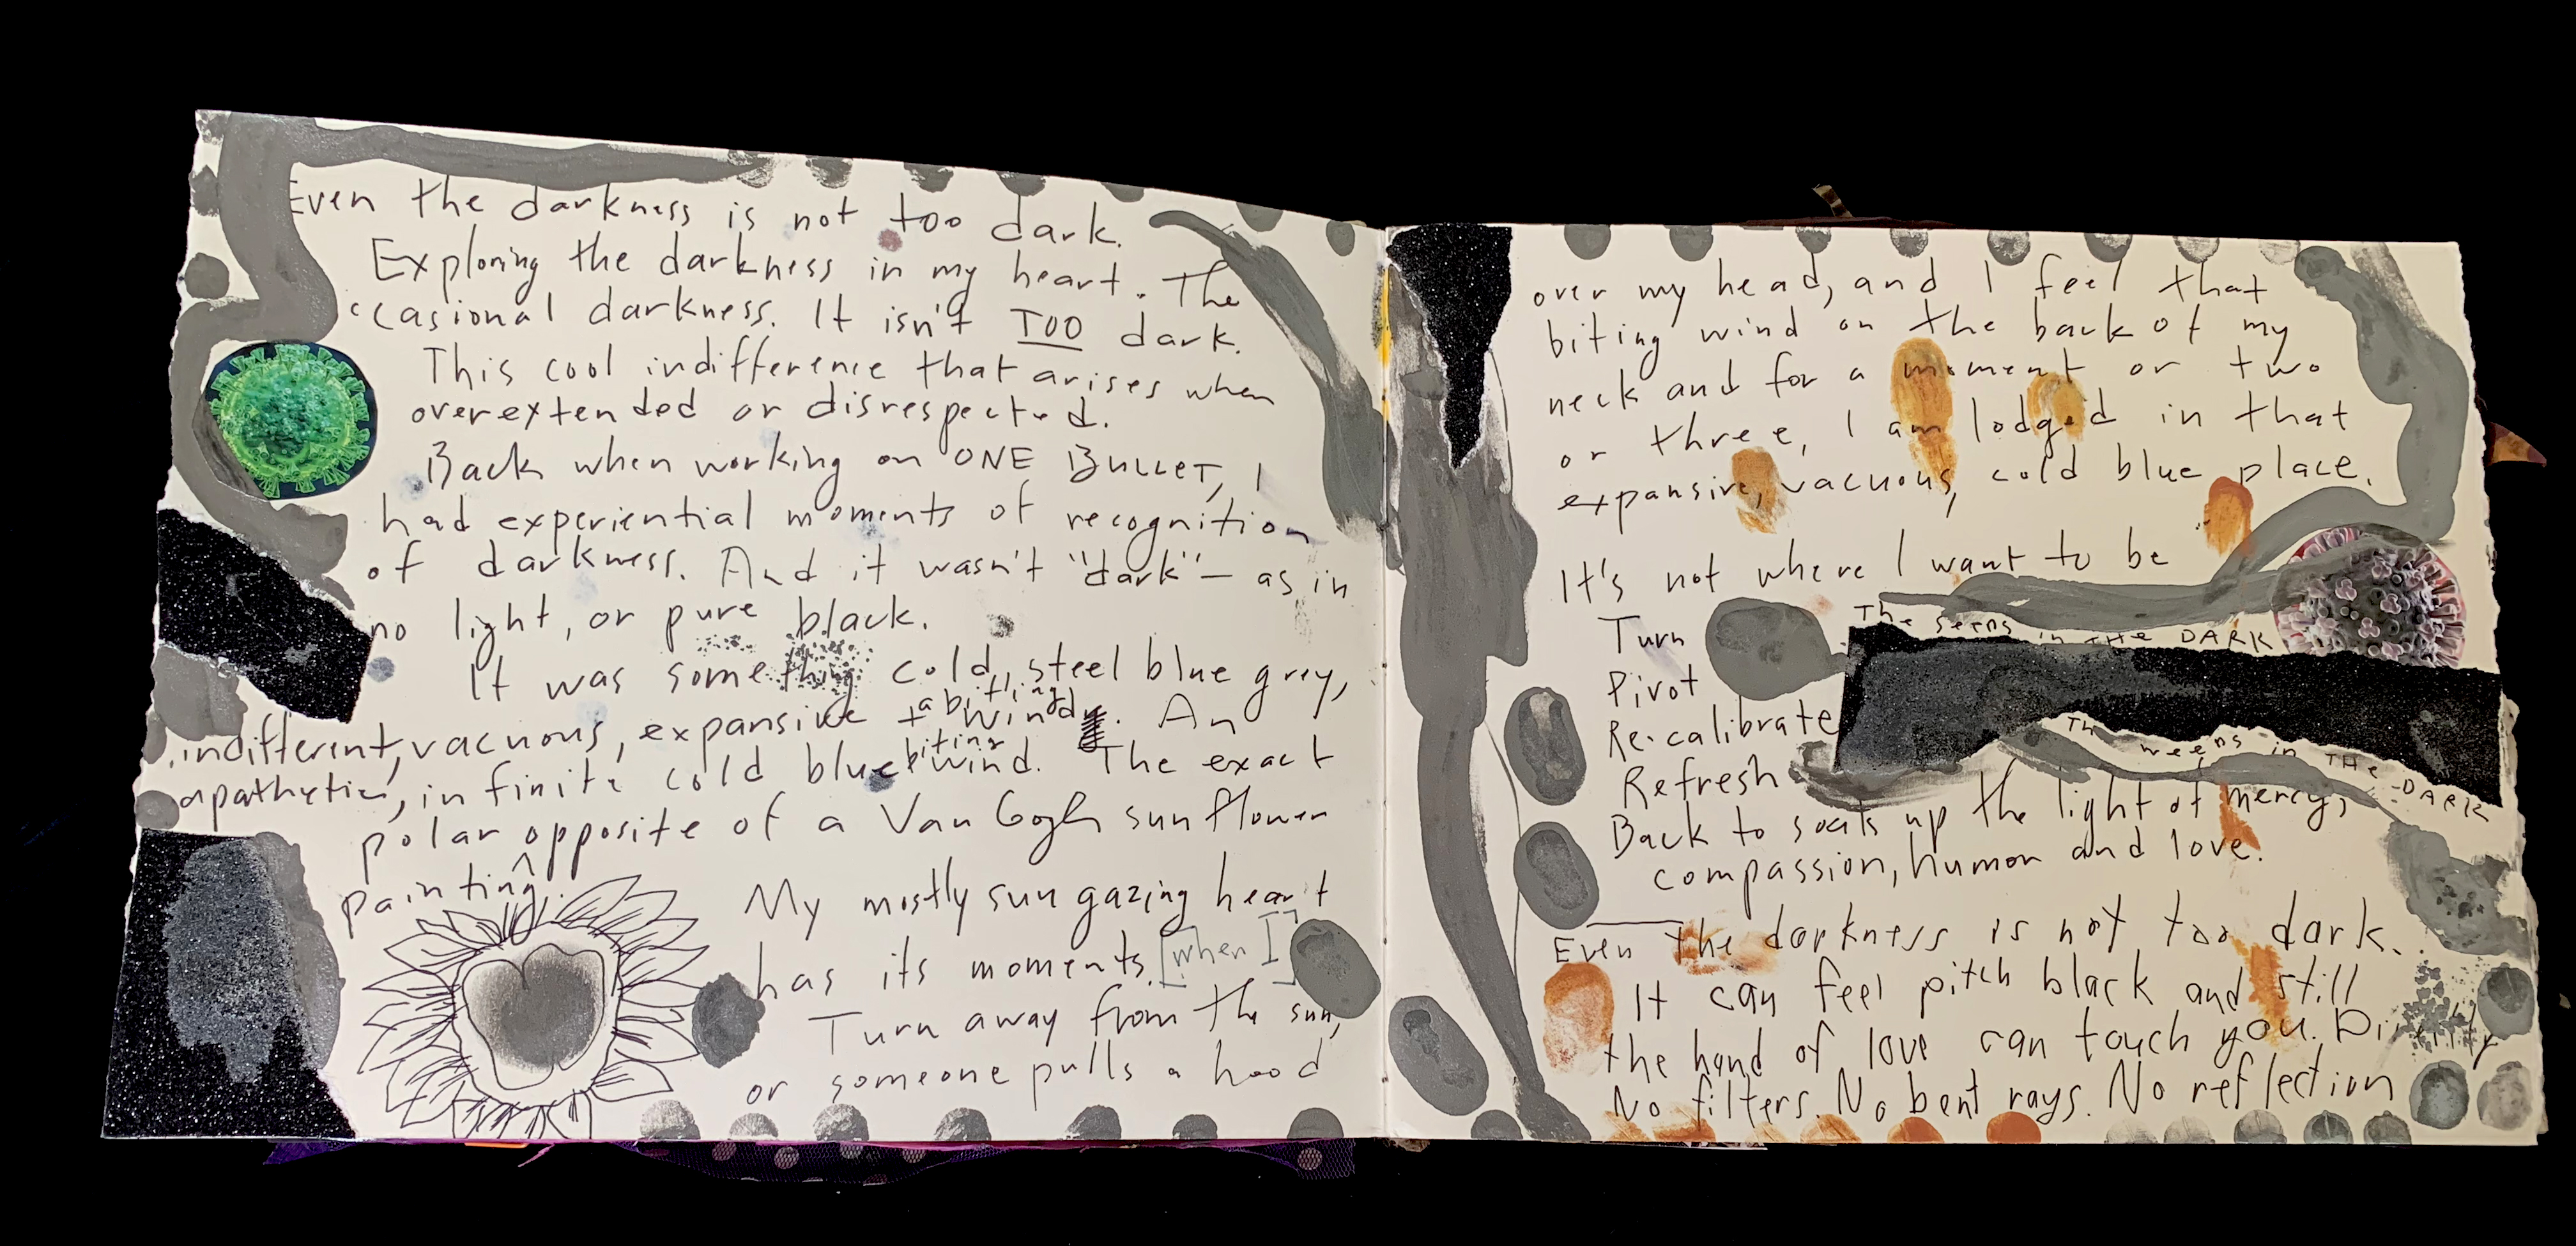 Even the darkness is not too dark.
Exploring the darkness in my heart. The
ccasional darkness. It isn't TOO dark.
This cool indifference that arises when
overextended or disrespected.
Back when working on ONE BULLET, I
had experiential moments of recognition
of darkness. And it wasn't "dark" – as in
no light, or pure black.
It was something cold, steel blue grey,
indifferent, vacuous, expansive + a biting wind. An
apathetic, infinite cold blue biting wind. The exact
polar opposite of a Van Gogh sunflower
painting.
My mostly sun gazing heart
has its moments. [when I]
Turn away from the sun,
or someone pulls a hood
over my head, and I feel that
biting wind on the back of my
neck and for a moment or two
or three, I am lodged in that
expansive, vacuous, cold blue place.
It's not where I want to be
Turn
Pivot
Re-calibrate
Refresh
The seens in THE DARK
The weens in THE DARK
Back to soak up the light of mercy,
compassion, humor and love.
Even the darkness is not too dark.
It can feel pitch black and still
the hand of love can touch you. Directly
No filters. No bent rays. No reflection